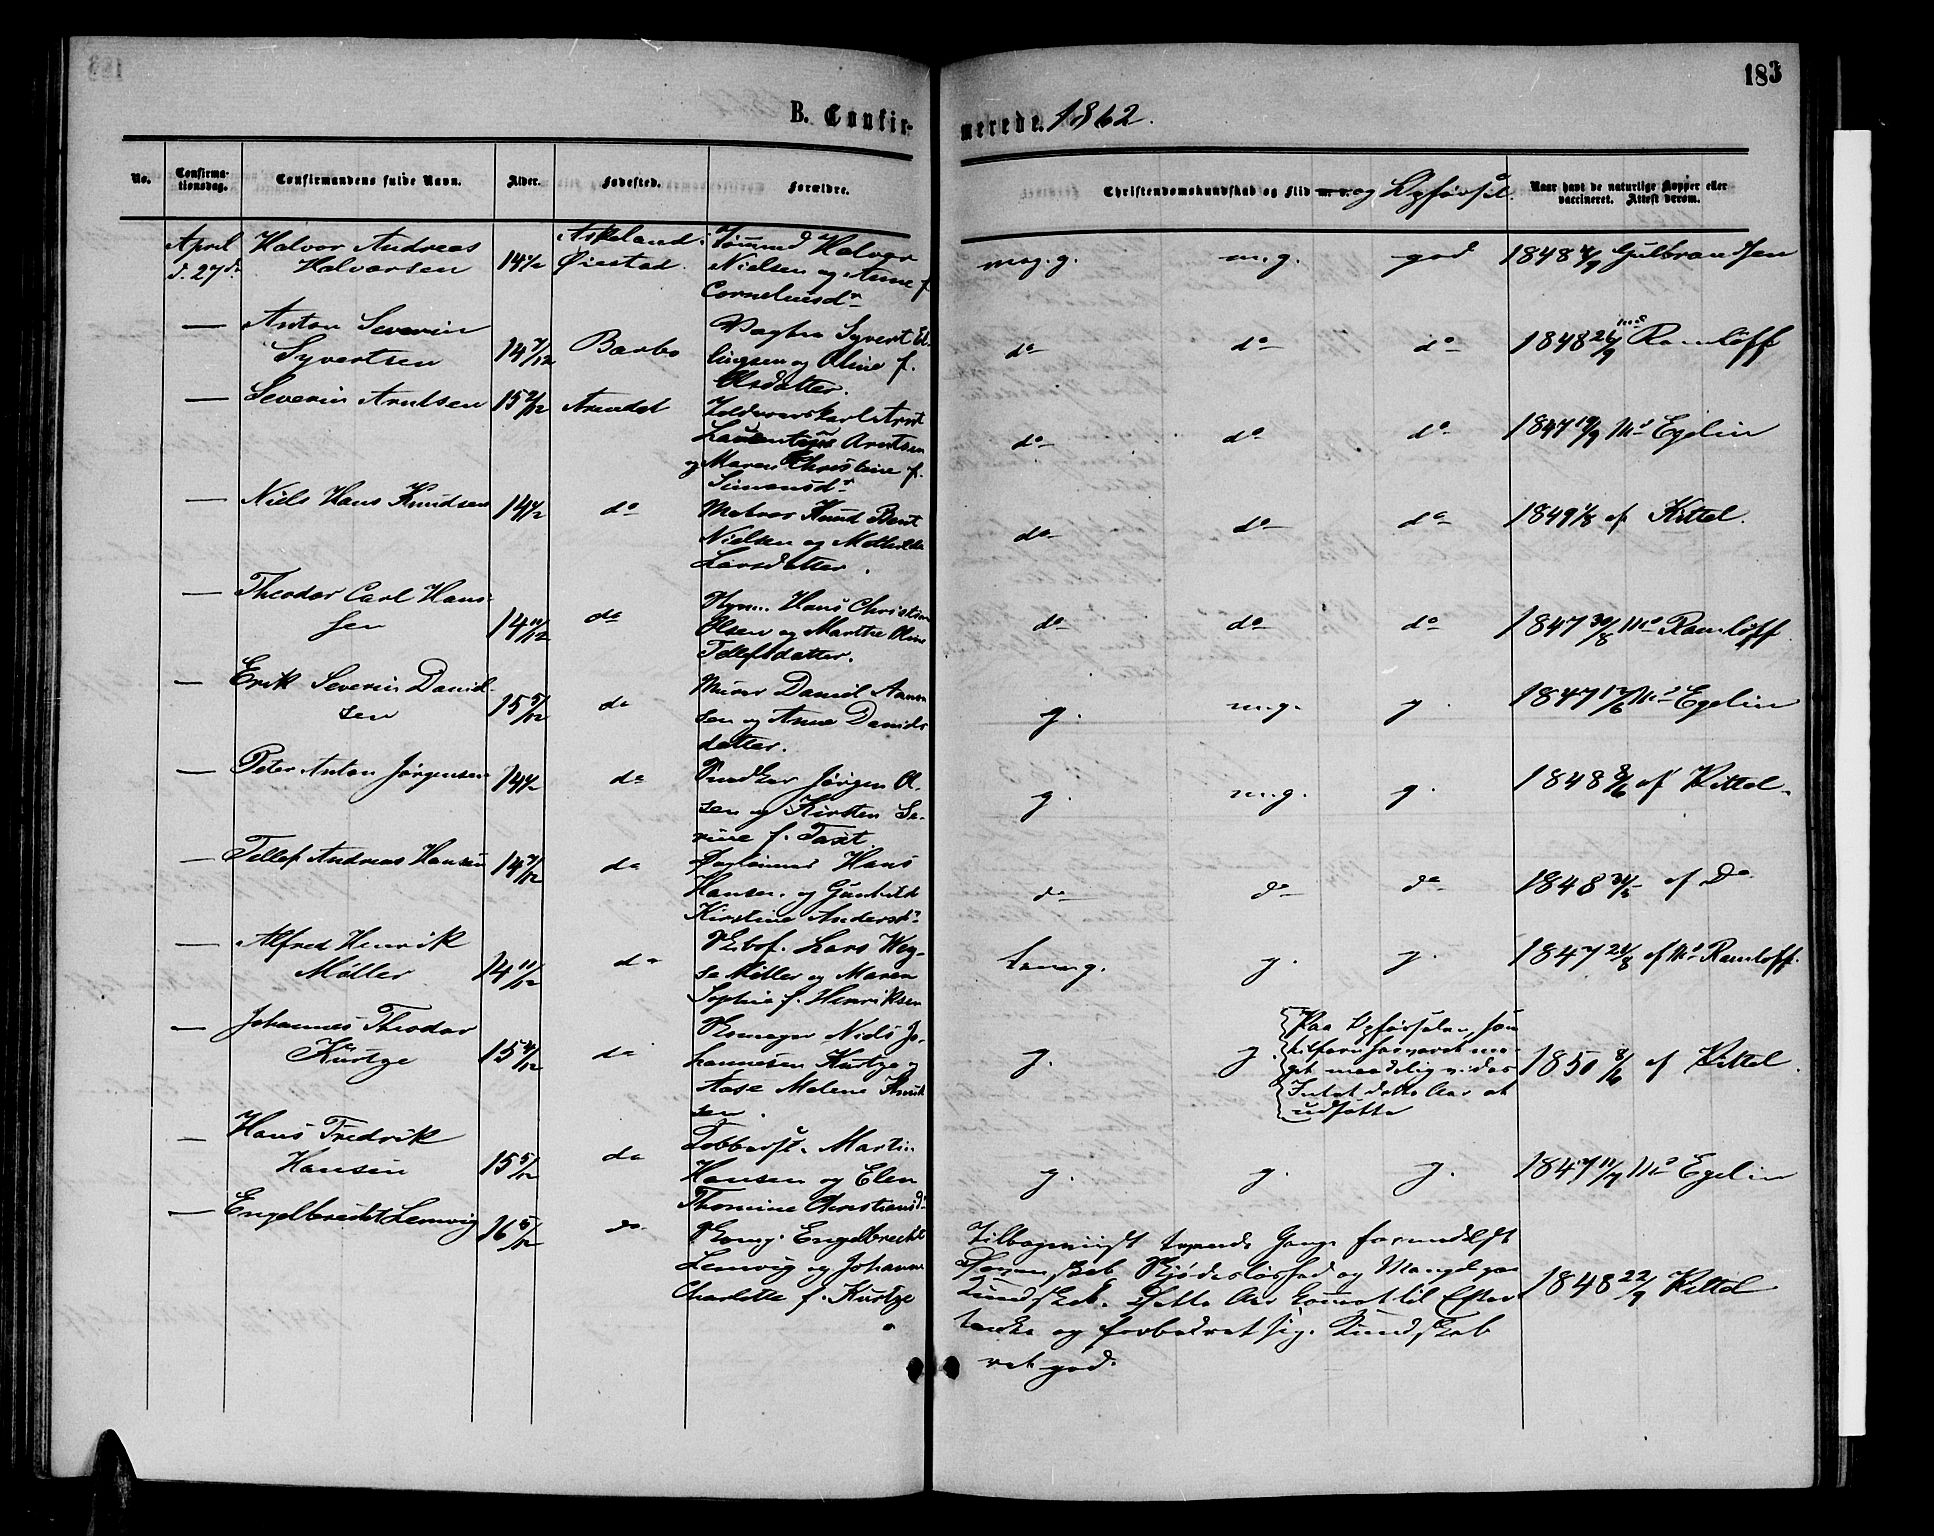 183
B. Confir-
merede. 1862.
No.
Confirma-
tionsdag.
Confirmandens fulde Navn.
Alder.
Fødested.
Forældre.
Christendomskundskab og Flid m. v. og Opførsel.
Naar havt de naturlige Kopper eller
vaccineret. Attest derom.
April
d. 27de
Halvor Andreas
Halvorsen
14 1/2
Askeland i
Øiestad
Tømmd Halvor
Nielsen og Anne f.
Corneliusdr
meg. g.
m. g.
god
1848 Gulbrandsen
—
Anton Severin
Syvertsen
14 7/12
Barbo
Syvert El-
lingsen og Oline f.
Olsdatter.
do
do
do
1848 26/9 Md Ramløff
—
Severin Arntsen
15 2/12
Arendal
Arnt
Laurentius Arntsen
og Maren Christine f.
Simonsdr
do
do
do
1847 19/9 Md Egelin
—
Niels Hans Knudsen
14 1/2
do
Matros Knud Bent
Nielsen og Mathilde
Larsdatter.
do
do
do
1849 1/8 af Kittel.
—
Theodor Carl Han-
sen
14 11/12
do
Hans Christian
Olsen og Marthe Oline
Tellefsdatter.
do
do
do
1847 30/8 Md Ramløff
—
Erik Severin Daniel-
sen
15 5/12
do
Murer Daniel Aanon-
sen og Anne Daniels-
datter.
g.
m. g.
g.
1847 17/6 Md Egelin
—
Peter Anton Jørgensen
14 1/2
do
Snedker Jørgen Ol-
sen og Kirsten Se-
rine f. Taxt.
g.
m. g.
g.
1848 8/6 af Kittel.
—
Tellef Andreas Hansen
14 7/12
do
Dagleiemd Hans
Hansen og Gunhild
Kirstine Andersdr
do
do
do
1848 af Do
—
Alfred Henrik
Møller
14 11/12
do
Skibsf. Lars Wey-
se Møller og Maren
Sophie f. Henriksen
g.
g.
1847 21/8 af Md Ramløff.
—
Johannes Theodor
Kurtze
15 4/12
do
Skomager Niels Jo-
hannesen Kurtze og
Aase Malene Knud-
sen.
g.
g.
Paa Opførselen, som
tilforn har været me-
get maadelig, vides
Intet dette Aar at
udsætte
1850 8/6 af Kittel.
—
Hans Fredrik
Hansen
15 5/12
do
Martin
Hansen og Elen
Thomine Christiansdr
g.
g.
g.
1847 11/7 Md Egelin
—
Engelbrecht Lemvig
16 5/12
do
Skomg. Engelbrecht
Lemvig og Johanne
Charlotte f. Kurtze
Tilbageviist tvende Gange formedelst
Dovenskab Skjødesløshed og Mangel paa
Kundskab. Dette Aar kommet til Efter-
tanke og forbedret sig. Kundskab
ret god.
1848 22/9 Kittel